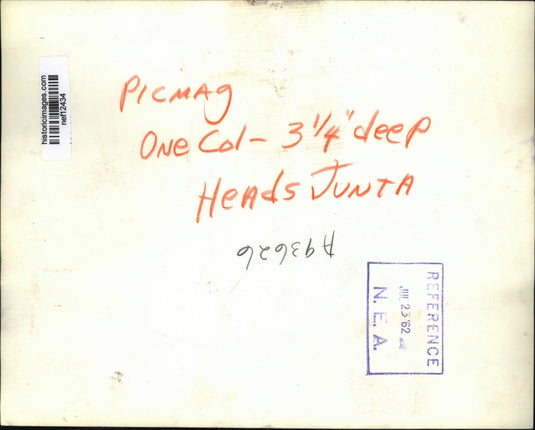 historicimages.com
nef12434
PICMAG
ONE Col - 3 1/4" deep
HeAdS JUNTA
A93626
REFERENCE
JUL 23 '62
N. E. A.